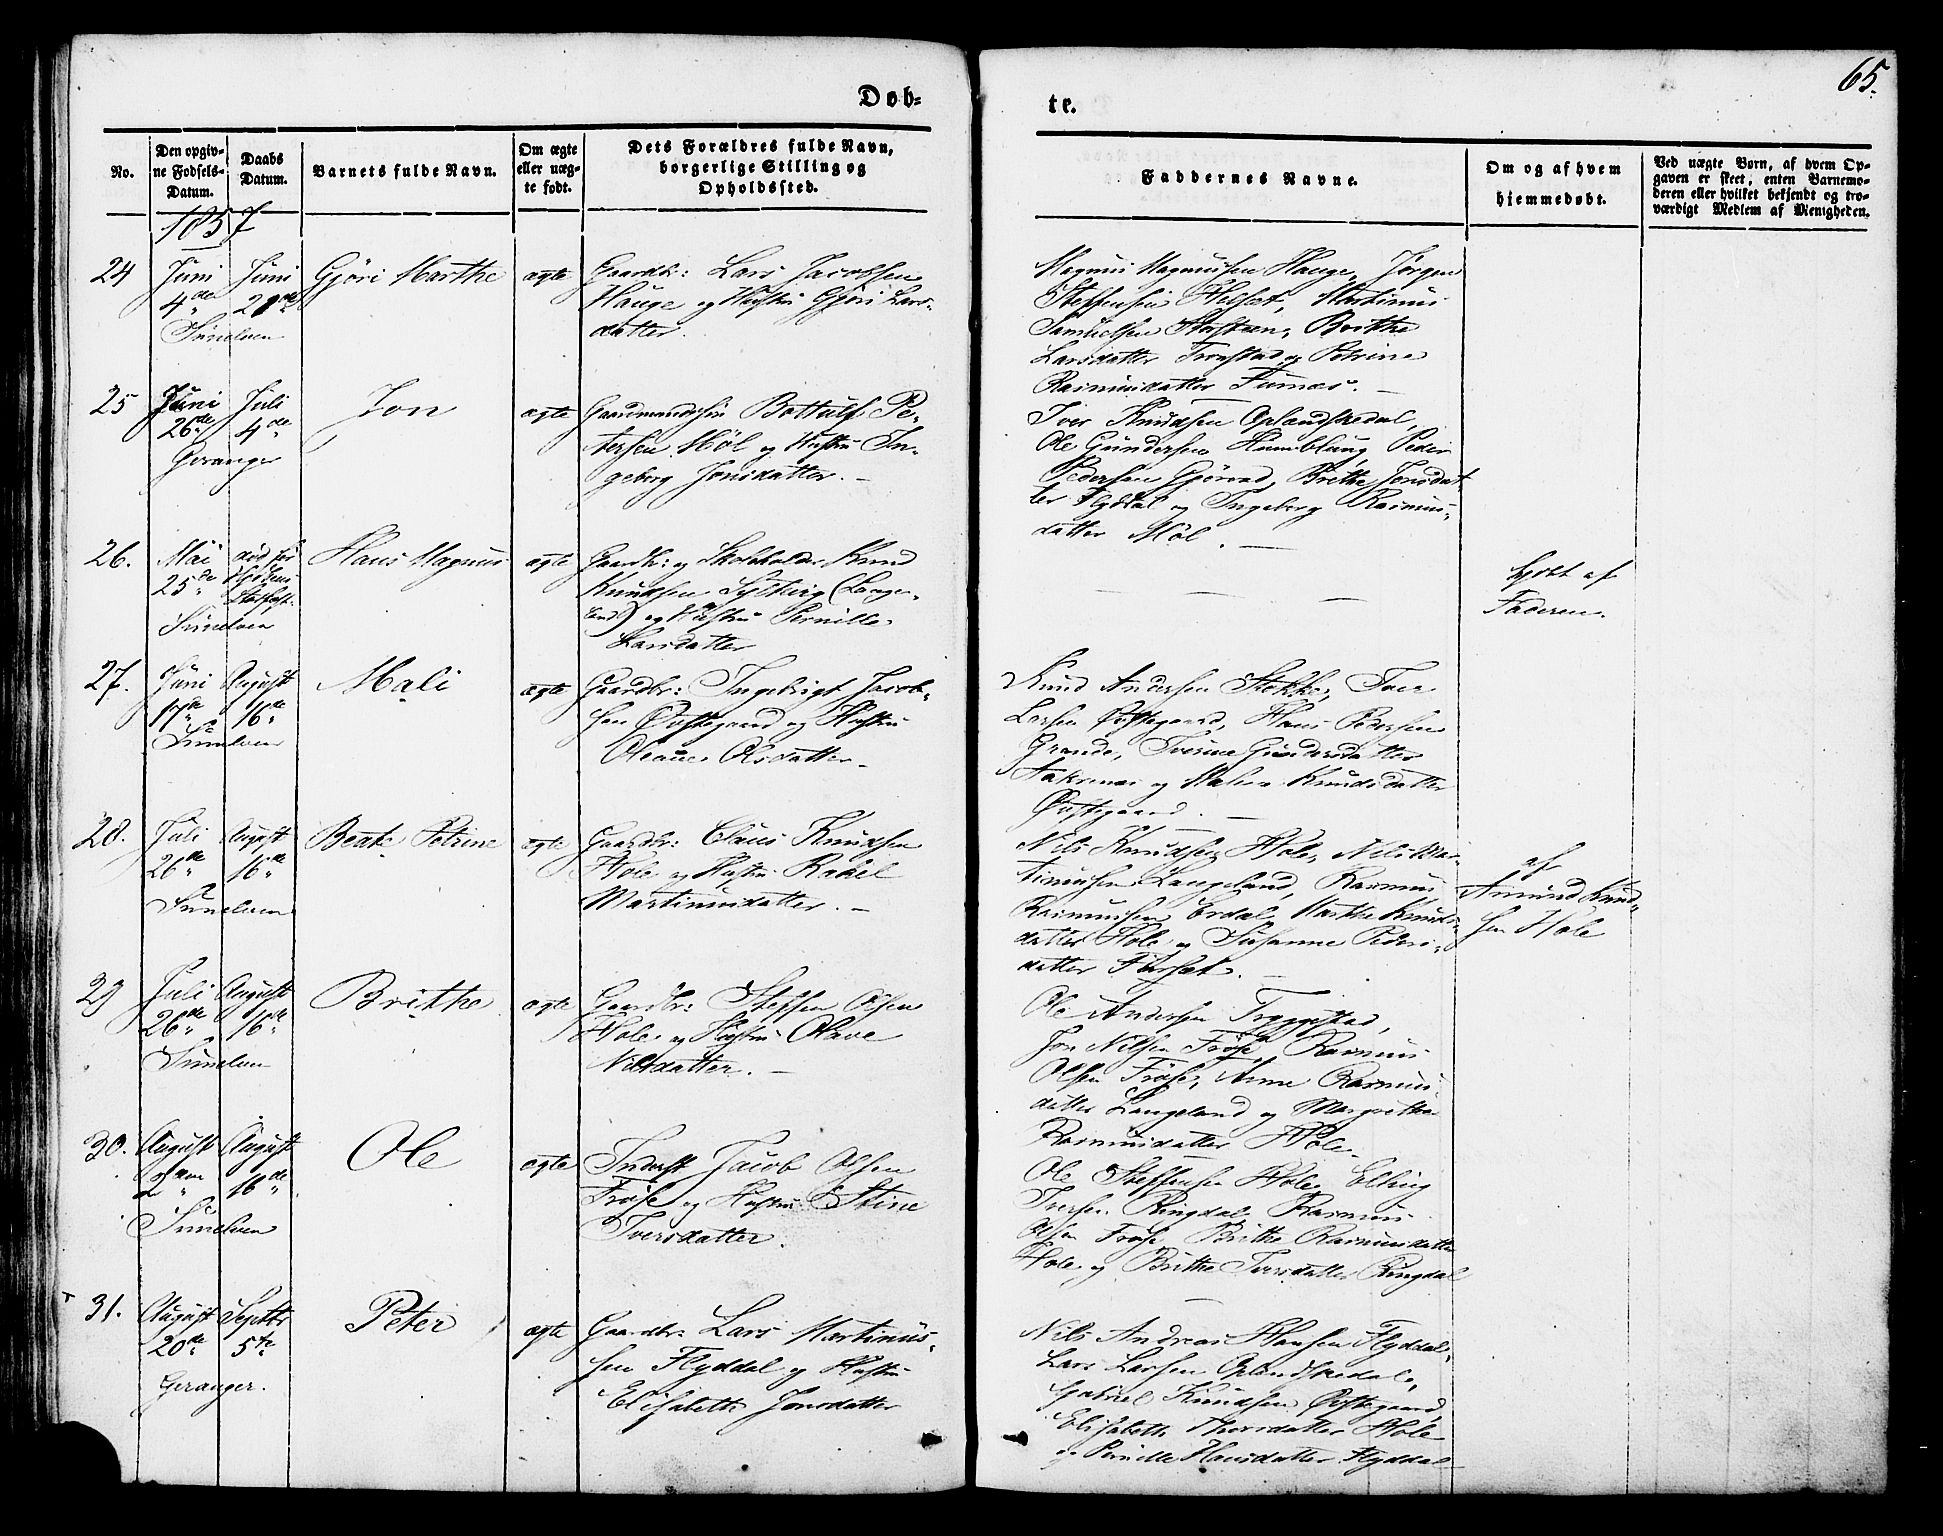 Døb-
te.
65.
No.
Den opgivne Fødsels-Datum.
Daabs Datum.
Barnets fulde Navn.
Om ægte eller uægte født.
Dets Forældres fulde Navn, borgerlige Stilling og Opholdssted.
Faddernes Navne.
Om og af hvem hjemmedøbt.
Ved uægte Børn, af hvem Opgaven er skeet, enten Barnemoderen eller hvilket bekjendt og troværdigt Medlem af Menigheden.
1857
24
Juni 4de
Sunelven
Juni
Gjøri Marthe
ægte
Gaardbr: Lars Jacobsen
Hauge og Hustru Gjøri Lars-
datter.
Magnus Magnussen Hauge, Jørgen
Steffensen Helset, Martinus
Samuelsen Storsteen, Brithe
Larsdatter Tronstad og Petrine
Rasmusdatter Furnæs. —
25
Juni 26de
Geranger
Juli 4de
Jon
ægte
Gaardmandssøn Bottulf Pe-
tersen Møl og Hustru In-
geborg Jonsdatter. —
Iver Knudsen Oplandskedal,
Ole Gundersen Humblung, Peder
Pedersen Gjørvad, Brithe Jonsdat-
ter Flydal og Ingeborg Rasmus-
datter Møl. —
26.
Mai 25de
Sunelven
død før
Hans Magnus
ægte
Gaardbr: og Skoleholder Knud
Knudsen Sylteing (Lange-
land) og Hustru Pernille
Larsdatter
— — —
hjdbt af
Faderen.
27.
Juni 17de
Sunelven
August 16de
Mali
ægte
Gaardbr: Ingebrigt Jacob-
sen Øvstegaard og Hustru
Oleane Olsdatter. —
Knud Andersen Stokke, Iver
Larsen Øvstegaard, Hans Pedersen
Grande, Iverine Gundersdatter
Aakrenæs og Malene Knudsdatter
Øvstegaard. —
28.
Juli 26de
Sunelven
August 16de
Beate Petrine
ægte
Gaardbr: Claus Knudsen
Hole og Hustru Rakel
Martinusdatter. —
Nils Knudsen Hole, Nils Mar-
tinussen Langeland, Rasmus
Rasmussen Erdal, Marthe Knuds-
datter Hole og Susanne Peders-
datter
af
Amund Knud-
sen Hole
29
Juli 26de
Sunelven
August 16de
Brithe
ægte
Gaardbr: Steffen Olsen
Hole og Hustru Olave
Nilsdatter. —
Ole Andersen Tryggestad,
Jon Nilsen Frøse, Rasmus
Olsen Frøse, Anne Rasmus-
datter Langeland og Margrethe
Rasmusdatter Hole.
30.
August 2den
Sunelven
August 16de
Ole
ægte
Inderst Jacob Olsen
Frøse og Hustru Stine
Iversdatter.
Ole Steffensen Hole, Elling
Iversen Ringdal, Rasmus
Olsen Frøse, Brithe Rasmusdatter
Hole og Brithe Iversdatter Ringdal
—
31.
August 20de
Geranger.
Septbr 5te
Peter
ægte
Gaardbr: Lars Martinus-
sen Flyddal og Hustru
Elisabeth Jonsdatter
Nils Andreas Hansen Flyddal,
Lars Larsen Oplandskedal,
Gabriel Knudsen Øvstegaard,
Elisabeth Thorsdatter Hole
og Pernille Hansdatter Flyddal